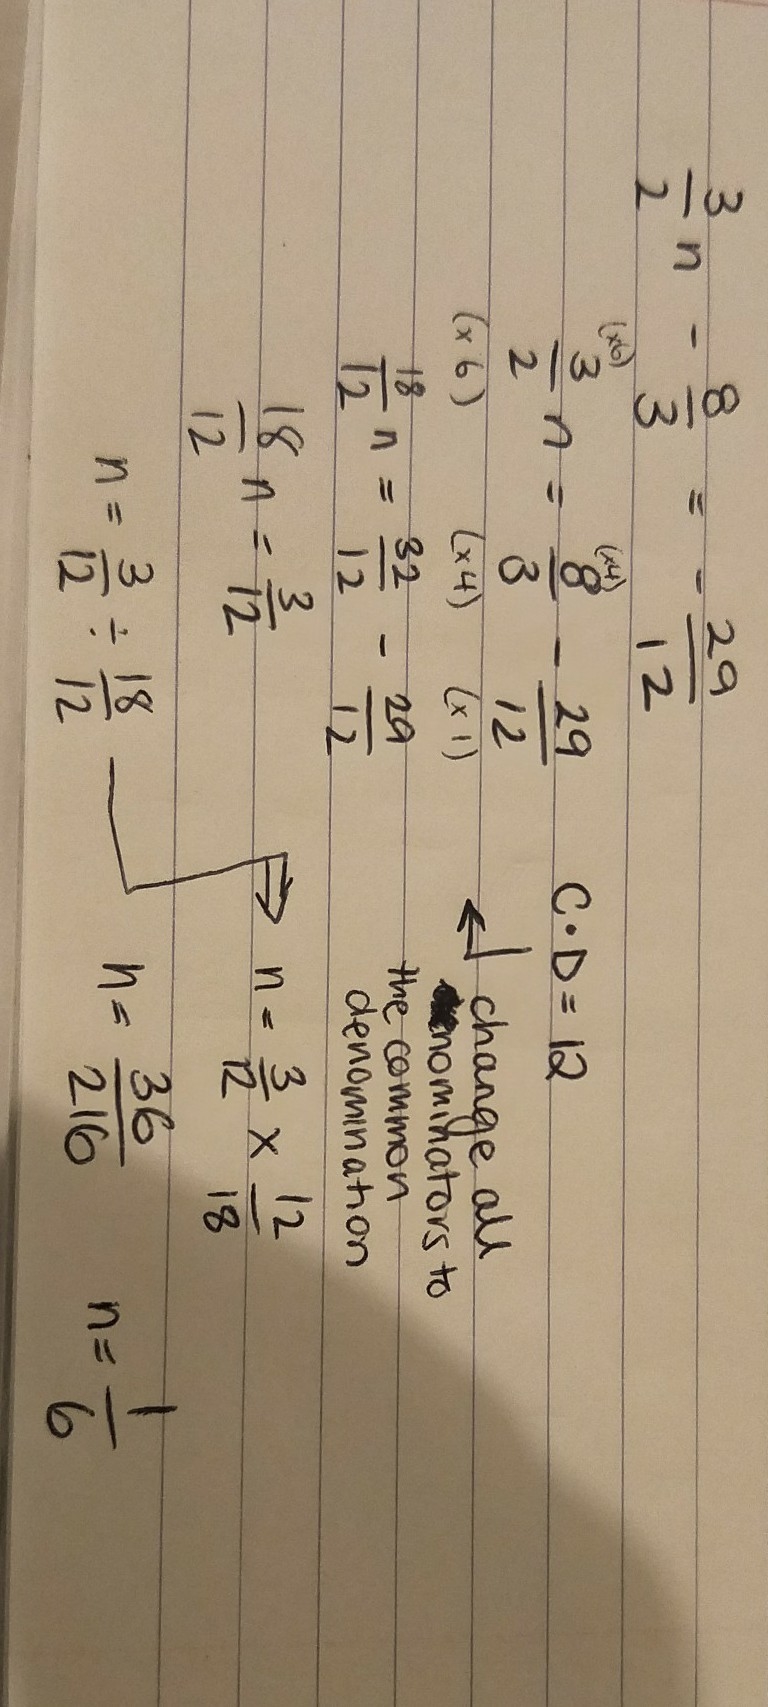 3/2 n - 8/3 = - 29/12
(x6) (x4)
3/2 n = 8/3 - 29/12 C.D = 12
(x 6) (x4) (x 1)
change all
nominators to
the common
denomination
18/12 n = 32/12 - 29/12
18/12 n = 3/12
n = 3/12 ÷ 18/12
n = 3/12 x 12/18
n = 36/216
n = 1/6